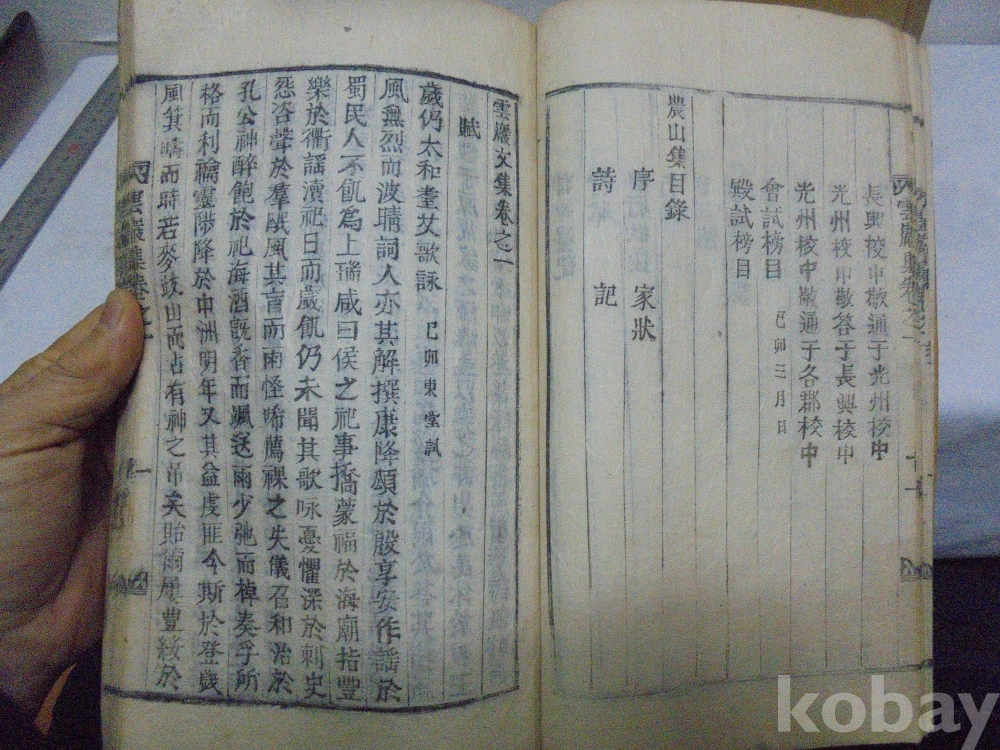 長興校中敬通于光州校中
光州校中敬答于長興校中
光州校中敬通于各郡校中
會試榜目 己卯三月日
殿試榜目
農山集目錄
序 家狀
詩 記
雲巖文集卷之一
賦
歲仍太和耋艾歌詠 己卯東堂試
風無烈而波晴詞人亦其解撰康降頌於殷享安作謠於
蜀民人不飢爲上瑞咸曰侯之祀事撟蒙福於海廟指豐
樂於衢謠瀆祀日而歲飢仍未聞其歌咏憂懼深於刺史
怨咨聲於羣氓風其盲而雨怪唏薦祼之失儀召和洽於
孔公神醉飽於祀海酒旣香而颯送雨少弛而棹奏孚所
格而利禱靈陟降於中洲明年又其益虔匪今斯於登歲
風箕疇而時若麥歧山而占有神之吊矣貽爾屢豐綏於
雲巖集卷之一
一
kobay